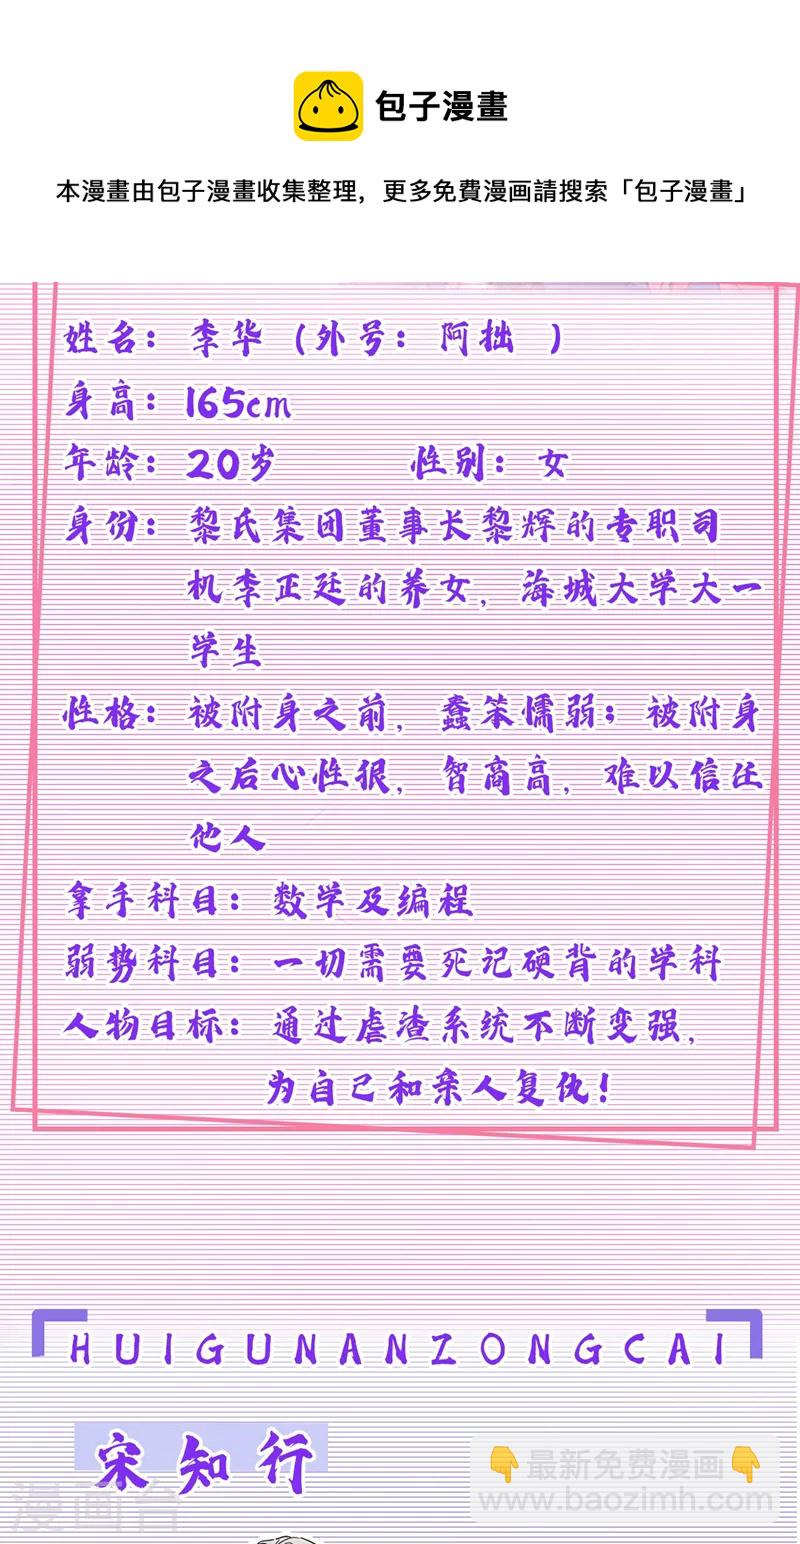 包子漫畫
本漫畫由包子漫畫收集整理，更多免費漫画請搜索「包子漫畫」
姓名：李华（外号：阿拙 ）
身高：165cm
年龄：20岁 性别：女
身份：黎氏集团董事长黎辉的专职司
机李正廷的养女，海城大学大一
学生
性格：被附身之前，蠢笨懦弱；被附身
之后心性狠，智商高，难以信任
他人
拿手科目：数学及编程
弱势科目：一切需要死记硬背的学科
人物目标：通过虐渣系统不断变强，
为自己和亲人复仇！
HUIGUNANZONGCAI
宋知行
👇最新免费漫画👇
www.baozimh.com
漫画台